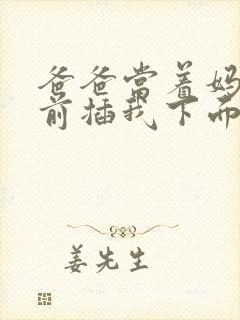 爸爸当着妈
前插我下面
姜先生